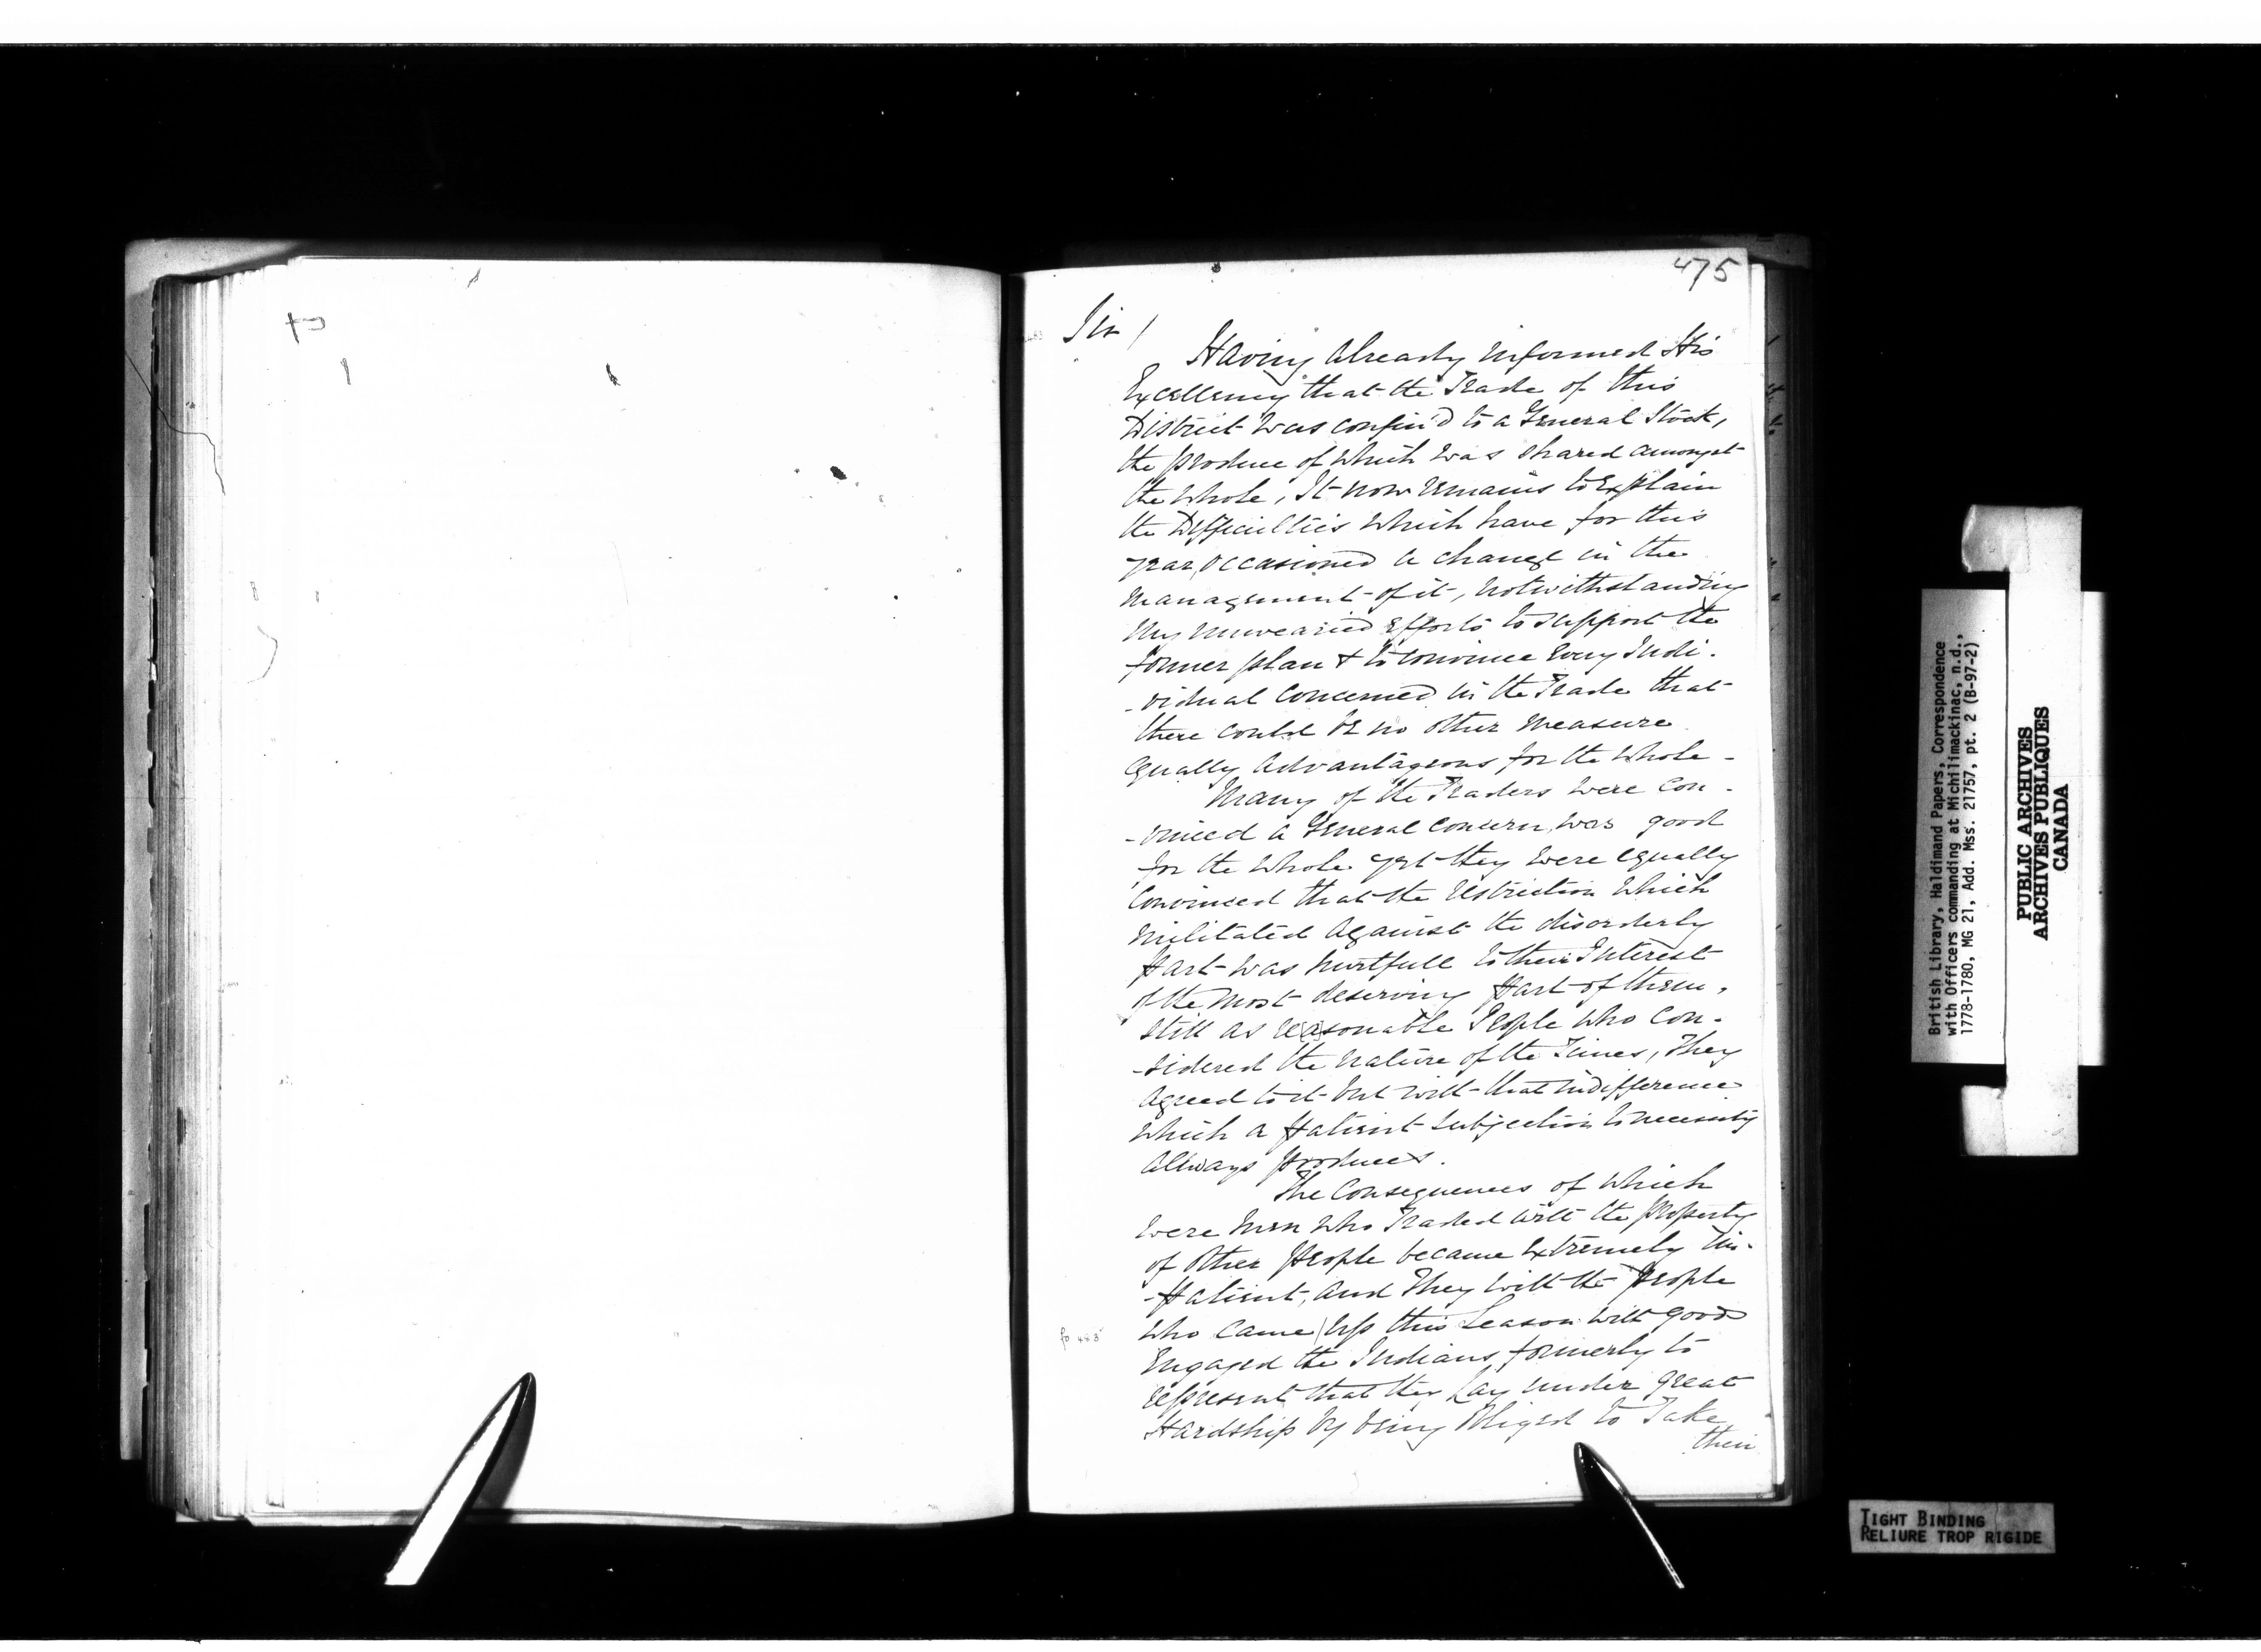 475
Sir /
Having Already informed His
Excellency that the Trade of this
District was confin'd to a General Stock,
the produce of which was shared amongst
the whole, It now remains to Explain
the Difficulties which have for this
year, occasioned a change in the
management of it, notwithstanding
My unwearied Efforts to support the
former plan & to convince Every Indi-
-vidual concerned in the Trade that
there could be no other measure
Equally Advantageous for the whole -
Many of the Traders were con-
-vinced a General concern, was good
for the whole yet they were equally
Convinced that the restriction which
militated Against the disorderly
part was hurtfull to their Interest
of the most deserving part of them,
still as reasonable People who con-
-sidered the nature of the Times, They
Agreed to it but with that indifference
which a patient subjection to necessity
Allways produces.
The Consequences of which
were Men who Traded with the property
of other people became Extremely Im-
-patient, and They with the People
who came up this Season with goods
fo 483
Engaged the Indians, formerly to
represent that they Lay under great
Hardship by being Obliged to Take
their
British Library, Haldimand Papers, Correspondence
with Officers commanding at Michilimackinac, n.d.,
1778-1780, MG 21, Add. Mss. 21757, pt. 2 (B-97-2)
PUBLIC ARCHIVES
ARCHIVES PUBLIQUES
CANADA
TIGHT BINDING
RELIURE TROP RIGIDE